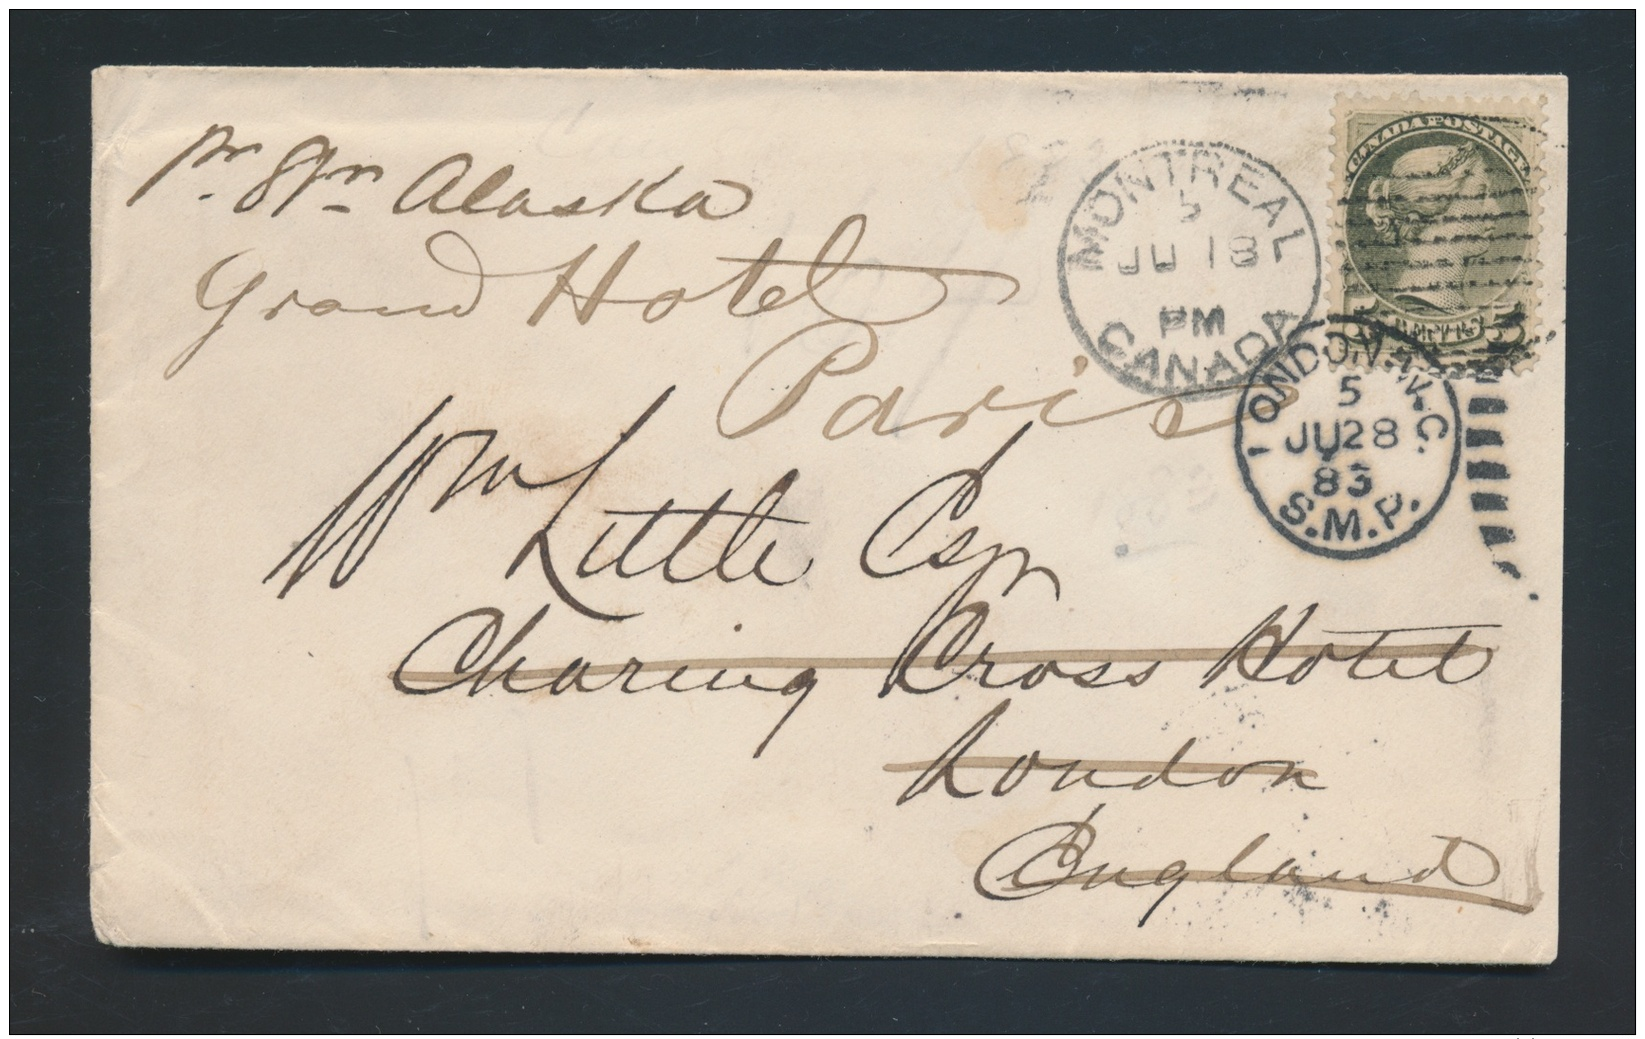 pr. Stm Alaska
Grand Hotel
Paris
Wm Little Esqr
Charing Cross Hotel
London
England
MONTREAL
5
JU 18
PM
CANADA
CANADA POSTAGE
5 5
LONDON.W.C.
5
JU28
83
S.M.P.